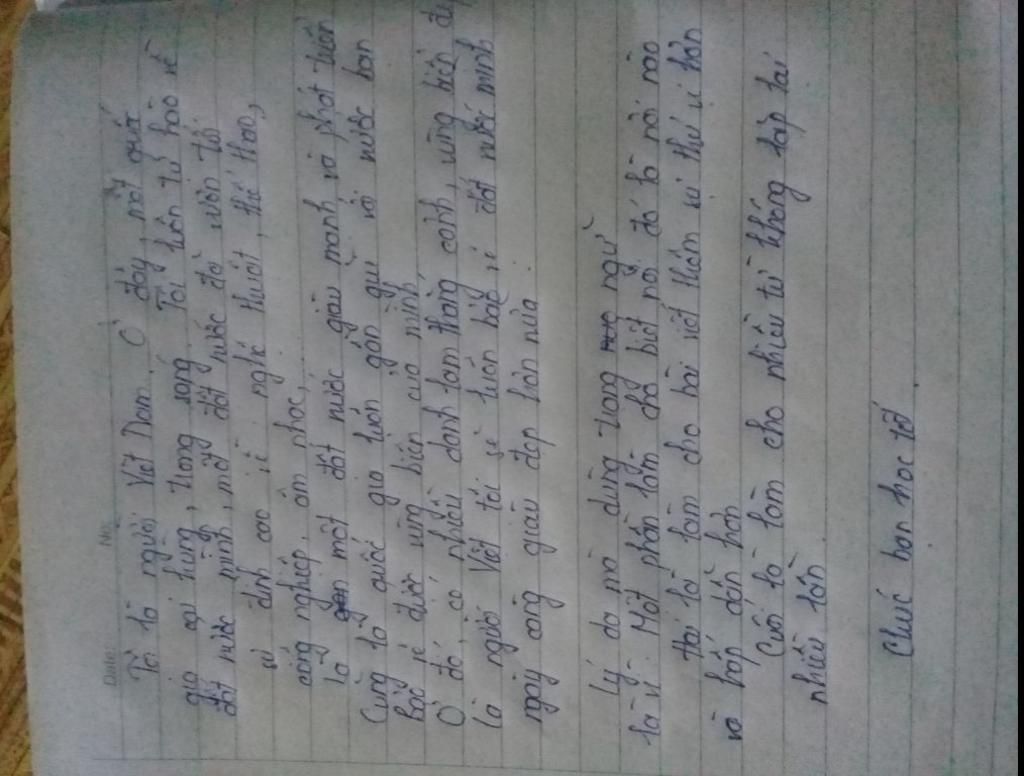 Date: No.
Tôi là người Việt Nam. Ở đây, một quốc
gia oai hùng, trang sáng. Tôi luôn tự hào về
đất nước mình, một đất nước đã vươn tới
vị đỉnh cao về nghệ thuật, thể thao,
công nghiệp, âm nhạc,...
là một đất nước giàu mạnh và phát triển
Cũng là quốc gia luôn gần gũi với nước bạn
bảo vệ được vùng biển của mình.
Ở đó, có nhiều danh lam thắng cảnh, vùng biển
Là người Việt tôi sẽ luôn bảo vệ đất nước mình
ngày càng giàu đẹp hơn nữa.
Lý do mà dùng trạng ngữ
là vì: Một phần làm cho biết nó đó là nơi nào
Hai là làm cho bài viết thêm vui thú vị hơn
và hấp dẫn hơn
Cuối là làm cho nhiều từ không lặp lại
nhiều lần
Chúc bạn học tố